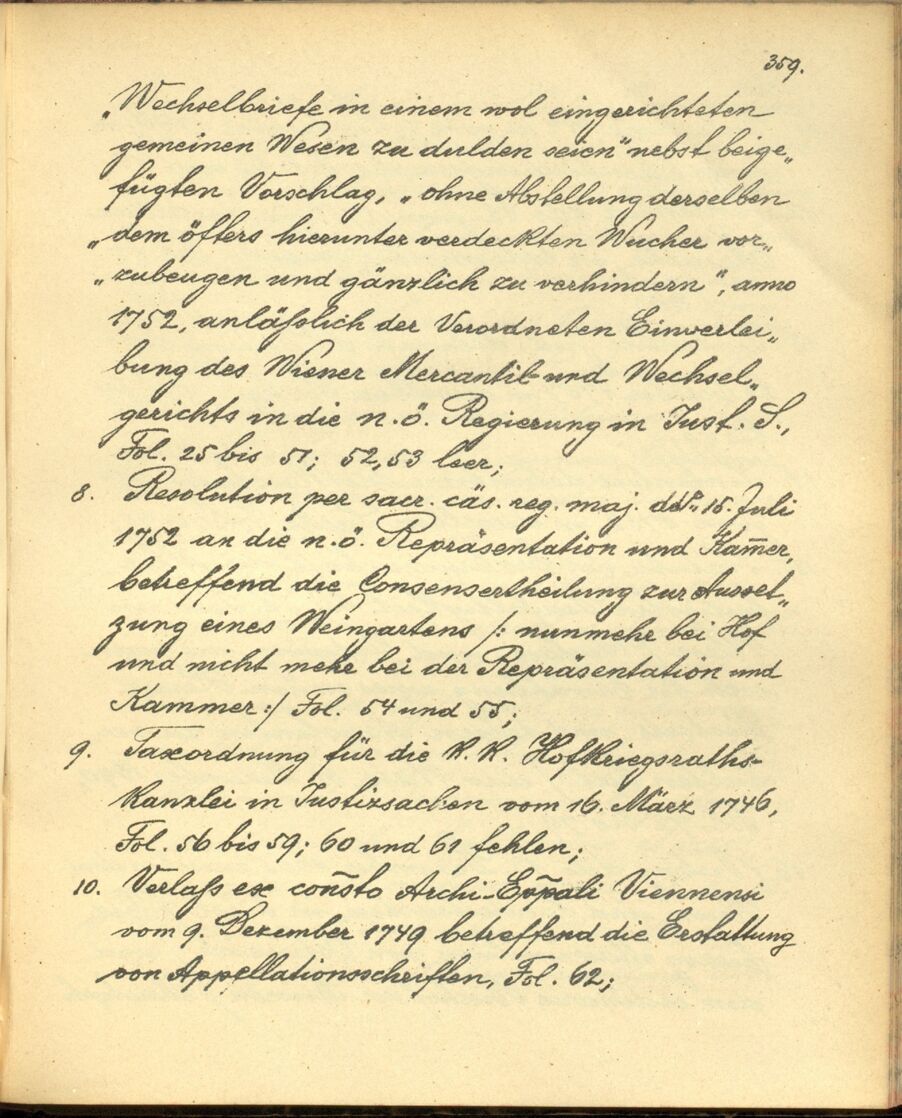 359.
„Wechselbriefe in einem wol eingerichteten
gemeinen Wesen zu dulden seien“ nebst beige„
fügten Vorschlag, „ohne Abstellung derselben
„dem öfters hierunter verdeckten Wucher vor„
„zubeugen und gänzlich zu verhindern“, anno
1752, anläßlich der Verordneten Einverlei„
bung des Wiener Mercantil- und Wechsel„
gerichts in die n.ö. Regierung in Just. S.,
Fol. 25 bis 51; 52, 53 leer;
8. Resolution per sacr. cäs. reg. maj. 15. Juli
1752 an die n.ö. Repräsentation und Kam̄er,
betreffend die Consensertheilung zur Ausset„
zung eines Weingartens /: nunmehr bei Hof
und nicht mehr bei der Repräsentation und
Kammer :/ Fol. 54 und 55;
9. Taxordnung für die K. K. Hofkriegsraths-
kanzlei in Justizsachen vom 16. März 1746,
Fol. 56 bis 59; 60 und 61 fehlen;
10. Verlaß ex con̄sto Archi-Ep̄pali Viennensi
vom 9. Dezember 1749 betreffend die Erstattung
von Appellationsschriften, Fol. 62;